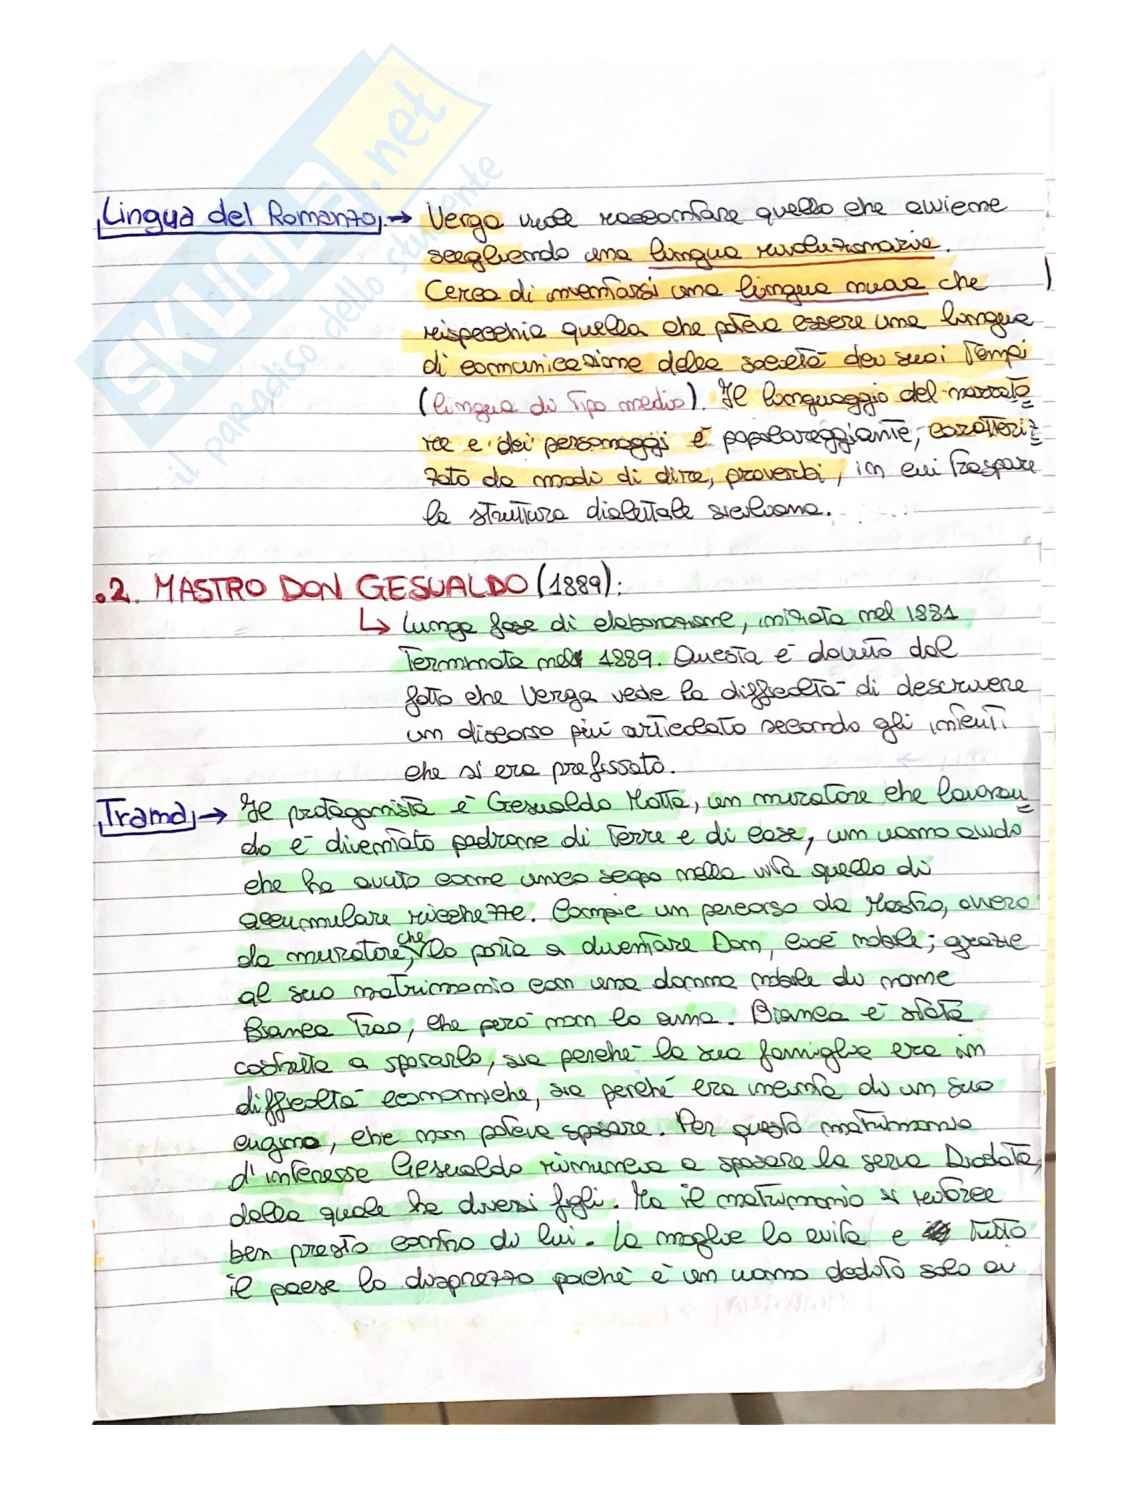 SKUOLA.net
il paradiso dello studente
Lingua del Romanzo → Verga vuole raccontare quello che avviene
scegliendo una lingua rivoluzionaria.
Cerca di inventarsi una lingua nuova che
rispecchia quella che poteva essere una lingua
di comunicazione della società dei suoi tempi
(lingua di tipo medio). Il linguaggio del narrato=
re e dei personaggi è popolareggiante, caratteriz=
zato da modi di dire, proverbi, in cui traspare
la struttura dialettale siciliana.
.2. MASTRO DON GESUALDO (1889):
↳ Lunga fase di elaborazione, iniziata nel 1881
Terminata nel 1889. Questa è dovuto dal
fatto che Verga vede la difficoltà di descrivere
un discorso più articolato secondo gli intenti
che si era prefissato.
Trama → Il protagonista è Gesualdo Motta, un muratore che lavoran=
do è diventato padrone di terre e di case, un uomo avido
che ha avuto come unico scopo nella vita quello di
accumulare ricchezze. Compie un percorso da Mastro, ovvero
da muratore, che lo porta a diventare Don, cioè nobile; grazie
al suo matrimonio con una donna nobile di nome
Bianca Trao, che però non lo ama. Bianca è stata
costretta a sposarlo, sia perchè la sua famiglia era in
difficoltà economiche, sia perché era incinta di un suo
cugino, che non poteva sposare. Per questo matrimonio
d'interesse Gesualdo rinuncia a sposare la serva Diodata,
dalla quale ha diversi figli. Ma il matrimonio si ritorce
ben presto contro di lui. La moglie lo evita e tutto
il paese lo disprezza poichè è un uomo dedito solo ai